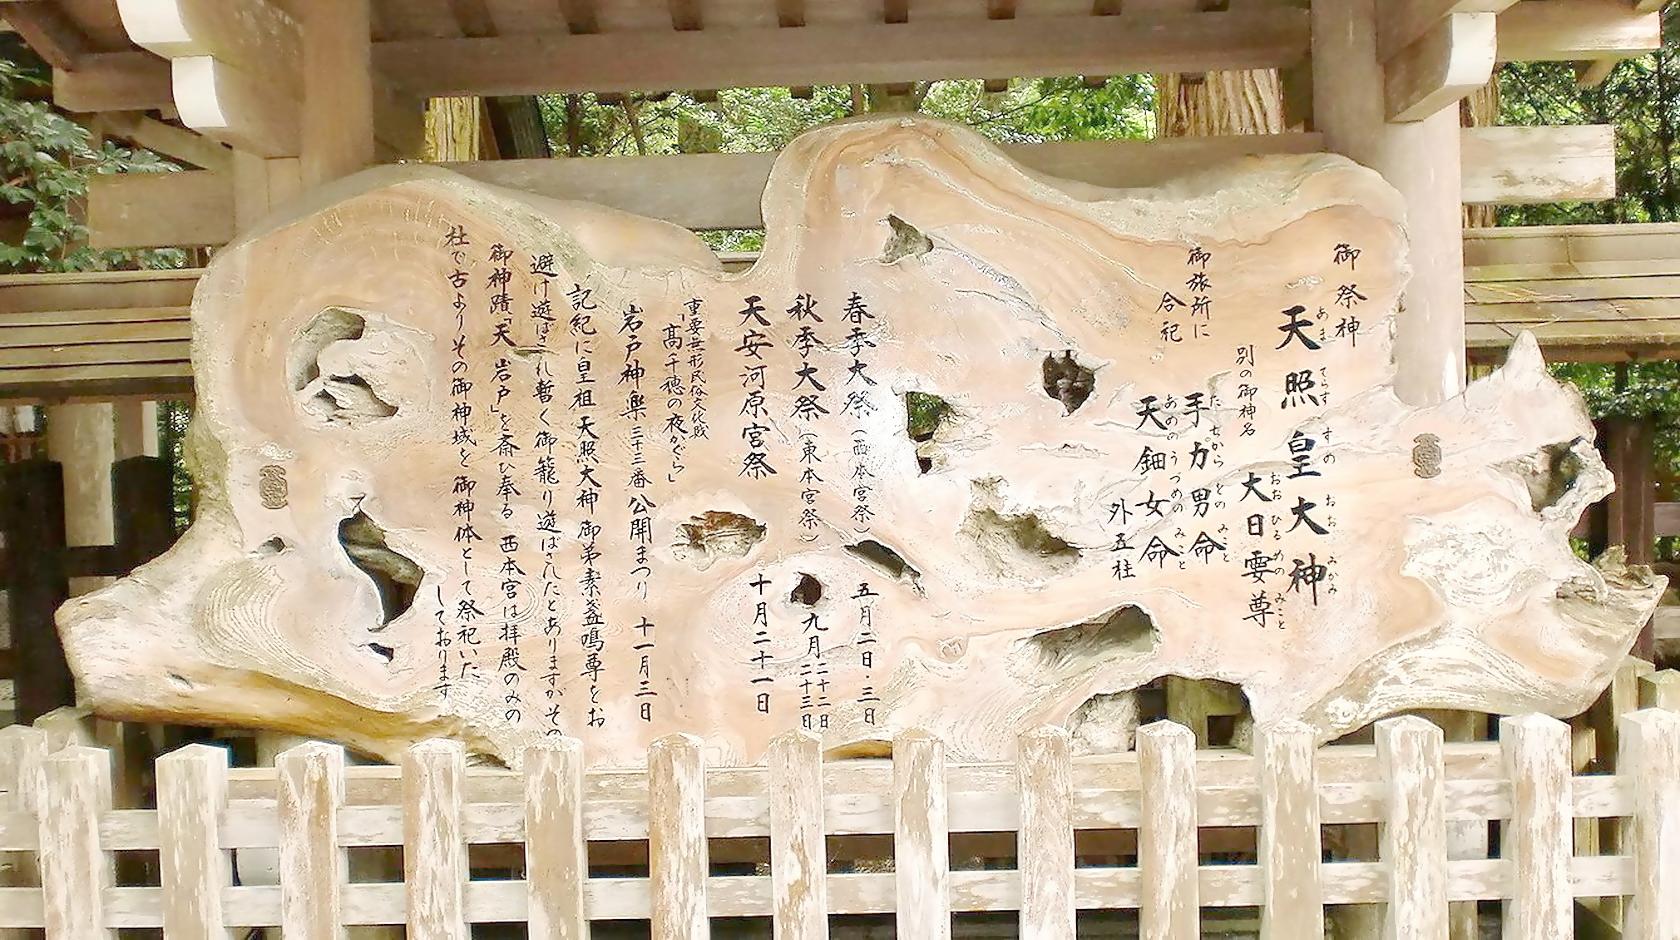 御祭神
天照皇大神
あま てらす すの おお みかみ
別の御神名
大日孁尊
おお ひる めの みこと
御旅所に
合祀
手力男命
た ぢから をの みこと
天鈿女命
あめの うづめの みこと
外五柱
春季大祭（西本宮祭）五月二日・三日
秋季大祭（東本宮祭）九月二十二日
二十三日
天安河原宮祭 十月二十一日
重要無形民俗文化財
「高千穂の夜かぐら」
岩戸神楽三十三番公開まつり 十一月三日
記紀に皇祖天照大神御弟素盞嗚尊をお
避け遊ばされ暫く御籠り遊ばされたとありますがその
御神蹟「天岩戸」を斎ひ奉る 西本宮は拝殿のみの
社で古よりその御神域を御神体として祭祀いた
しております